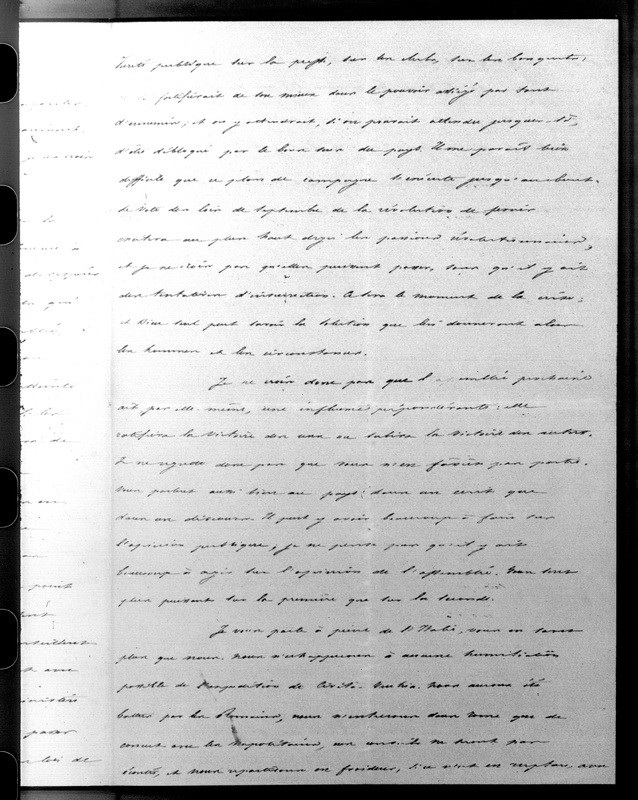 publique sur la presse, sur les clubs, sur les banquets;
fortifierait de son mieux dans le pouvoir dirigé par tant
d'ennemis; et on y attendrait, si on pouvait attendre jusque-là,
d'être débloqué par le bon sens du pays. Il me paraît bien
difficile que ce plan de campagne s'exécute jusqu'au bout.
Le vote des lois de Septembre de la révolution de février
au plus haut degré les passions révolutionnaires,
et je ne crois pas qu'elles puissent passer, sans qu'il y ait
des tentatives d'insurrection. Alors le moment de la crise;
et Dieu seul peut savoir la solution que lui donneront alors
les hommes et les circonstances.
Je ne crois donc pas que l'assemblée prochaine
ait par elle-même, une influence prépondérante: elle
ratifiera la victoire des uns ou subira la victoire des autres.
Je ne regrette donc pas que vous n'en fassiez pas partie.
Vous parlez aussi bien au pays dans un écrit que
dans un discours. Il peut y avoir beaucoup à faire sur
l'opinion publique; je ne pense pas qu'il y ait
beaucoup à agir sur l'opinion de l'assemblée. Vous êtes
plus puissant sur la première que sur la seconde.
Je vous parle à peine de l'Italie, vous en savez
plus que nous. Nous n'échapperons à aucune humiliation
possible de l'expédition de Civita-Vecchia. Nous aurons été
battus par les Romains, nous n'entrerons dans Rome que de
concert avec les Napolitains, nos conseils ne seront pas
écoutés, et nous repartirons en froideur, si ce n'est en rupture, avec